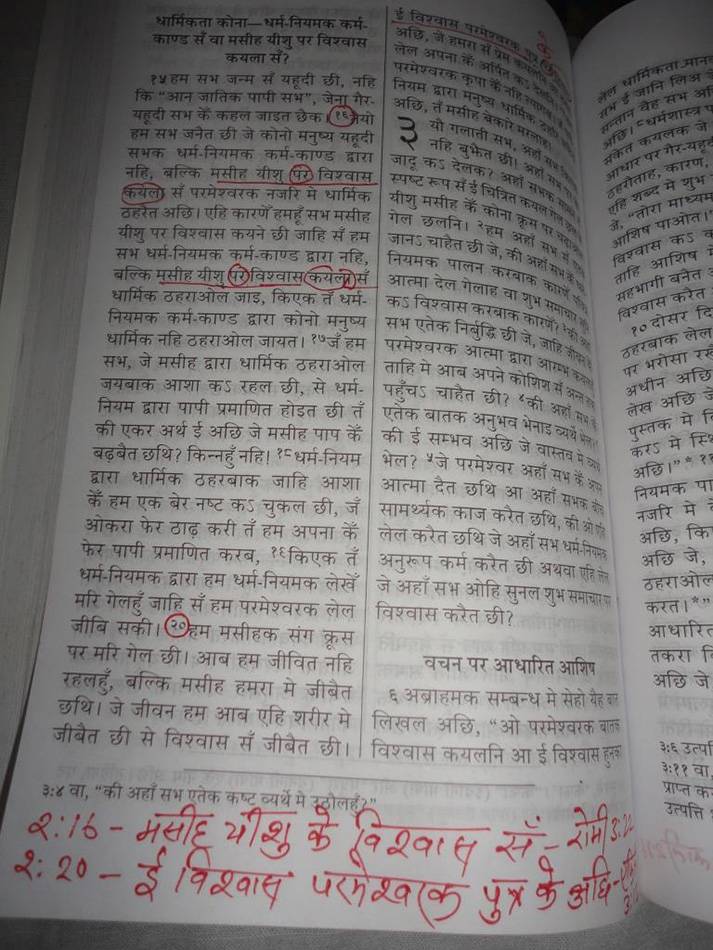 धार्मिकता कोना—धर्म-नियमक कर्म-
काण्ड सँ वा मसीह यीशु पर विश्वास
कयला सँ?
१५हम सभ जन्म सँ यहूदी छी, नहि
कि “आन जातिक पापी सभ”, जेना गैर-
यहूदी सभ केँ कहल जाइत छैक। १६तैयो
हम सभ जनैत छी जे कोनो मनुष्य यहूदी
सभक धर्म-नियमक कर्म-काण्ड द्वारा
नहि, बल्कि मसीह यीशु पर विश्वास
कयला सँ परमेश्वरक नजरि मे धार्मिक
ठहरैत अछि। एहि कारणेँ हमहूँ सभ मसीह
यीशु पर विश्वास कयने छी जाहि सँ हम
सभ धर्म-नियमक कर्म-काण्ड द्वारा नहि,
बल्कि मसीह यीशु पर विश्वास कयला सँ
धार्मिक ठहराओल जाइ, किएक तँ धर्म-
नियमक कर्म-काण्ड द्वारा कोनो मनुष्य
धार्मिक नहि ठहराओल जायत। १७जँ हम
सभ, जे मसीह द्वारा धार्मिक ठहराओल
जयबाक आशा कऽ रहल छी, से धर्म-
नियम द्वारा पापी प्रमाणित होइत छी तँ
की एकर अर्थ ई अछि जे मसीह पाप केँ
बढ़बैत छथि? किन्नहुँ नहि! १८धर्म-नियम
द्वारा धार्मिक ठहरबाक जाहि आशा
केँ हम एक बेर नष्ट कऽ चुकल छी, जँ
ओकरा फेर ठाढ़ करी तँ हम अपना केँ
फेर पापी प्रमाणित करब, १९किएक तँ
धर्म-नियमक द्वारा हम धर्म-नियमक लेखेँ
मरि गेलहुँ जाहि सँ हम परमेश्वरक लेल
जीबि सकी। २०हम मसीहक संग क्रूस
पर मरि गेल छी। आब हम जीवित नहि
रहलहुँ, बल्कि मसीह हमरा मे जीबैत
छथि। जे जीवन हम आब एहि शरीर मे
जीबैत छी से विश्वास सँ जीबैत छी।
ई विश्वास परमेश्वरक पुत्र
के
अछि, जे हमरा सँ प्रेम कयलनि
लेल अपना केँ अर्पित कऽ देलनि।
परमेश्वरक कृपा केँ नहि
नियम द्वारा मनुष्य धार्मिक
अछि, तँ मसीह बेकारे मरलाह।
३ यौ गलाती सभ, अहाँ सभ
नहि बुझैत छी! अहाँ सभ पर
जादू कऽ देलक? अहाँ सभक
स्पष्ट रूप सँ ई चित्रित कयल गेल
यीशु मसीह केँ कोना क्रूस पर
गेल छलनि। २हम अहाँ सभ सँ
जानऽ चाहैत छी जे, की अहाँ सभ केँ
नियमक पालन करबाक कारणेँ
आत्मा देल गेलाह वा शुभ समाचार
कऽ विश्वास करबाक कारणेँ? ३की अहाँ
सभ एतेक निर्बुद्धि छी जे, जाहि
परमेश्वरक आत्मा द्वारा आरम्भ
ताहि मे आब अपने कोशिश सँ अन्त
पहुँचऽ चाहैत छी? ४की अहाँ सभ केँ
एतेक बातक अनुभव भेनाइ व्यर्थे भेल?
की ई सम्भव अछि जे वास्तव मे व्यर्थे
भेल? ५जे परमेश्वर अहाँ सभ केँ अपन
आत्मा दैत छथि आ अहाँ सभक बीच
सामर्थ्यक काज करैत छथि, की ओ एहि
लेल करैत छथि जे अहाँ सभ धर्म-नियमक
अनुरूप कर्म करैत छी अथवा एहि लेल
जे अहाँ सभ ओहि सुनल शुभ समाचार पर
विश्वास करैत छी?
वचन पर आधारित आशिष
६ अब्राहमक सम्बन्ध मे सेहो यैह बात
लिखल अछि, “ओ परमेश्वरक बातक
विश्वास कयलनि आ ई विश्वास हुनका
३:४ वा, “की अहाँ सभ एतेक कष्ट व्यर्थे मे उठोलहुँ?”
२:16 - मसीह यीशु के विश्वास सँ - रोमी 3:22
२:20 - ई विश्वास परमेश्वरक पुत्र के अछि -
लेल धार्मिकता
सभ ई जानि लिअ
सन्तान वैह सभ
अछि। ८धर्मशास्त्र
संकेत कयलक जे
आधार पर गैर-यहूदी
ठहरौताह, कारण,
एहि शब्द मे शुभ
जे, “तोरा माध्यम
आशिष पाओत।”
विश्वास कऽ
ताहि आशिष
सहभागी बनैत
विश्वास करैत
१० दोसर
ठहरबाक लेल
पर भरोसा
अधीन अछि
लेख अछि जे
पुस्तक मे
करऽ मे
अछि।”*
नियमक
नजरि मे
अछि,
अछि जे,
ठहराओल
करत।*”
आधारित
तकरा
अछि जे
३:६
३:११ वा,
प्राप्त
उत्पत्ति